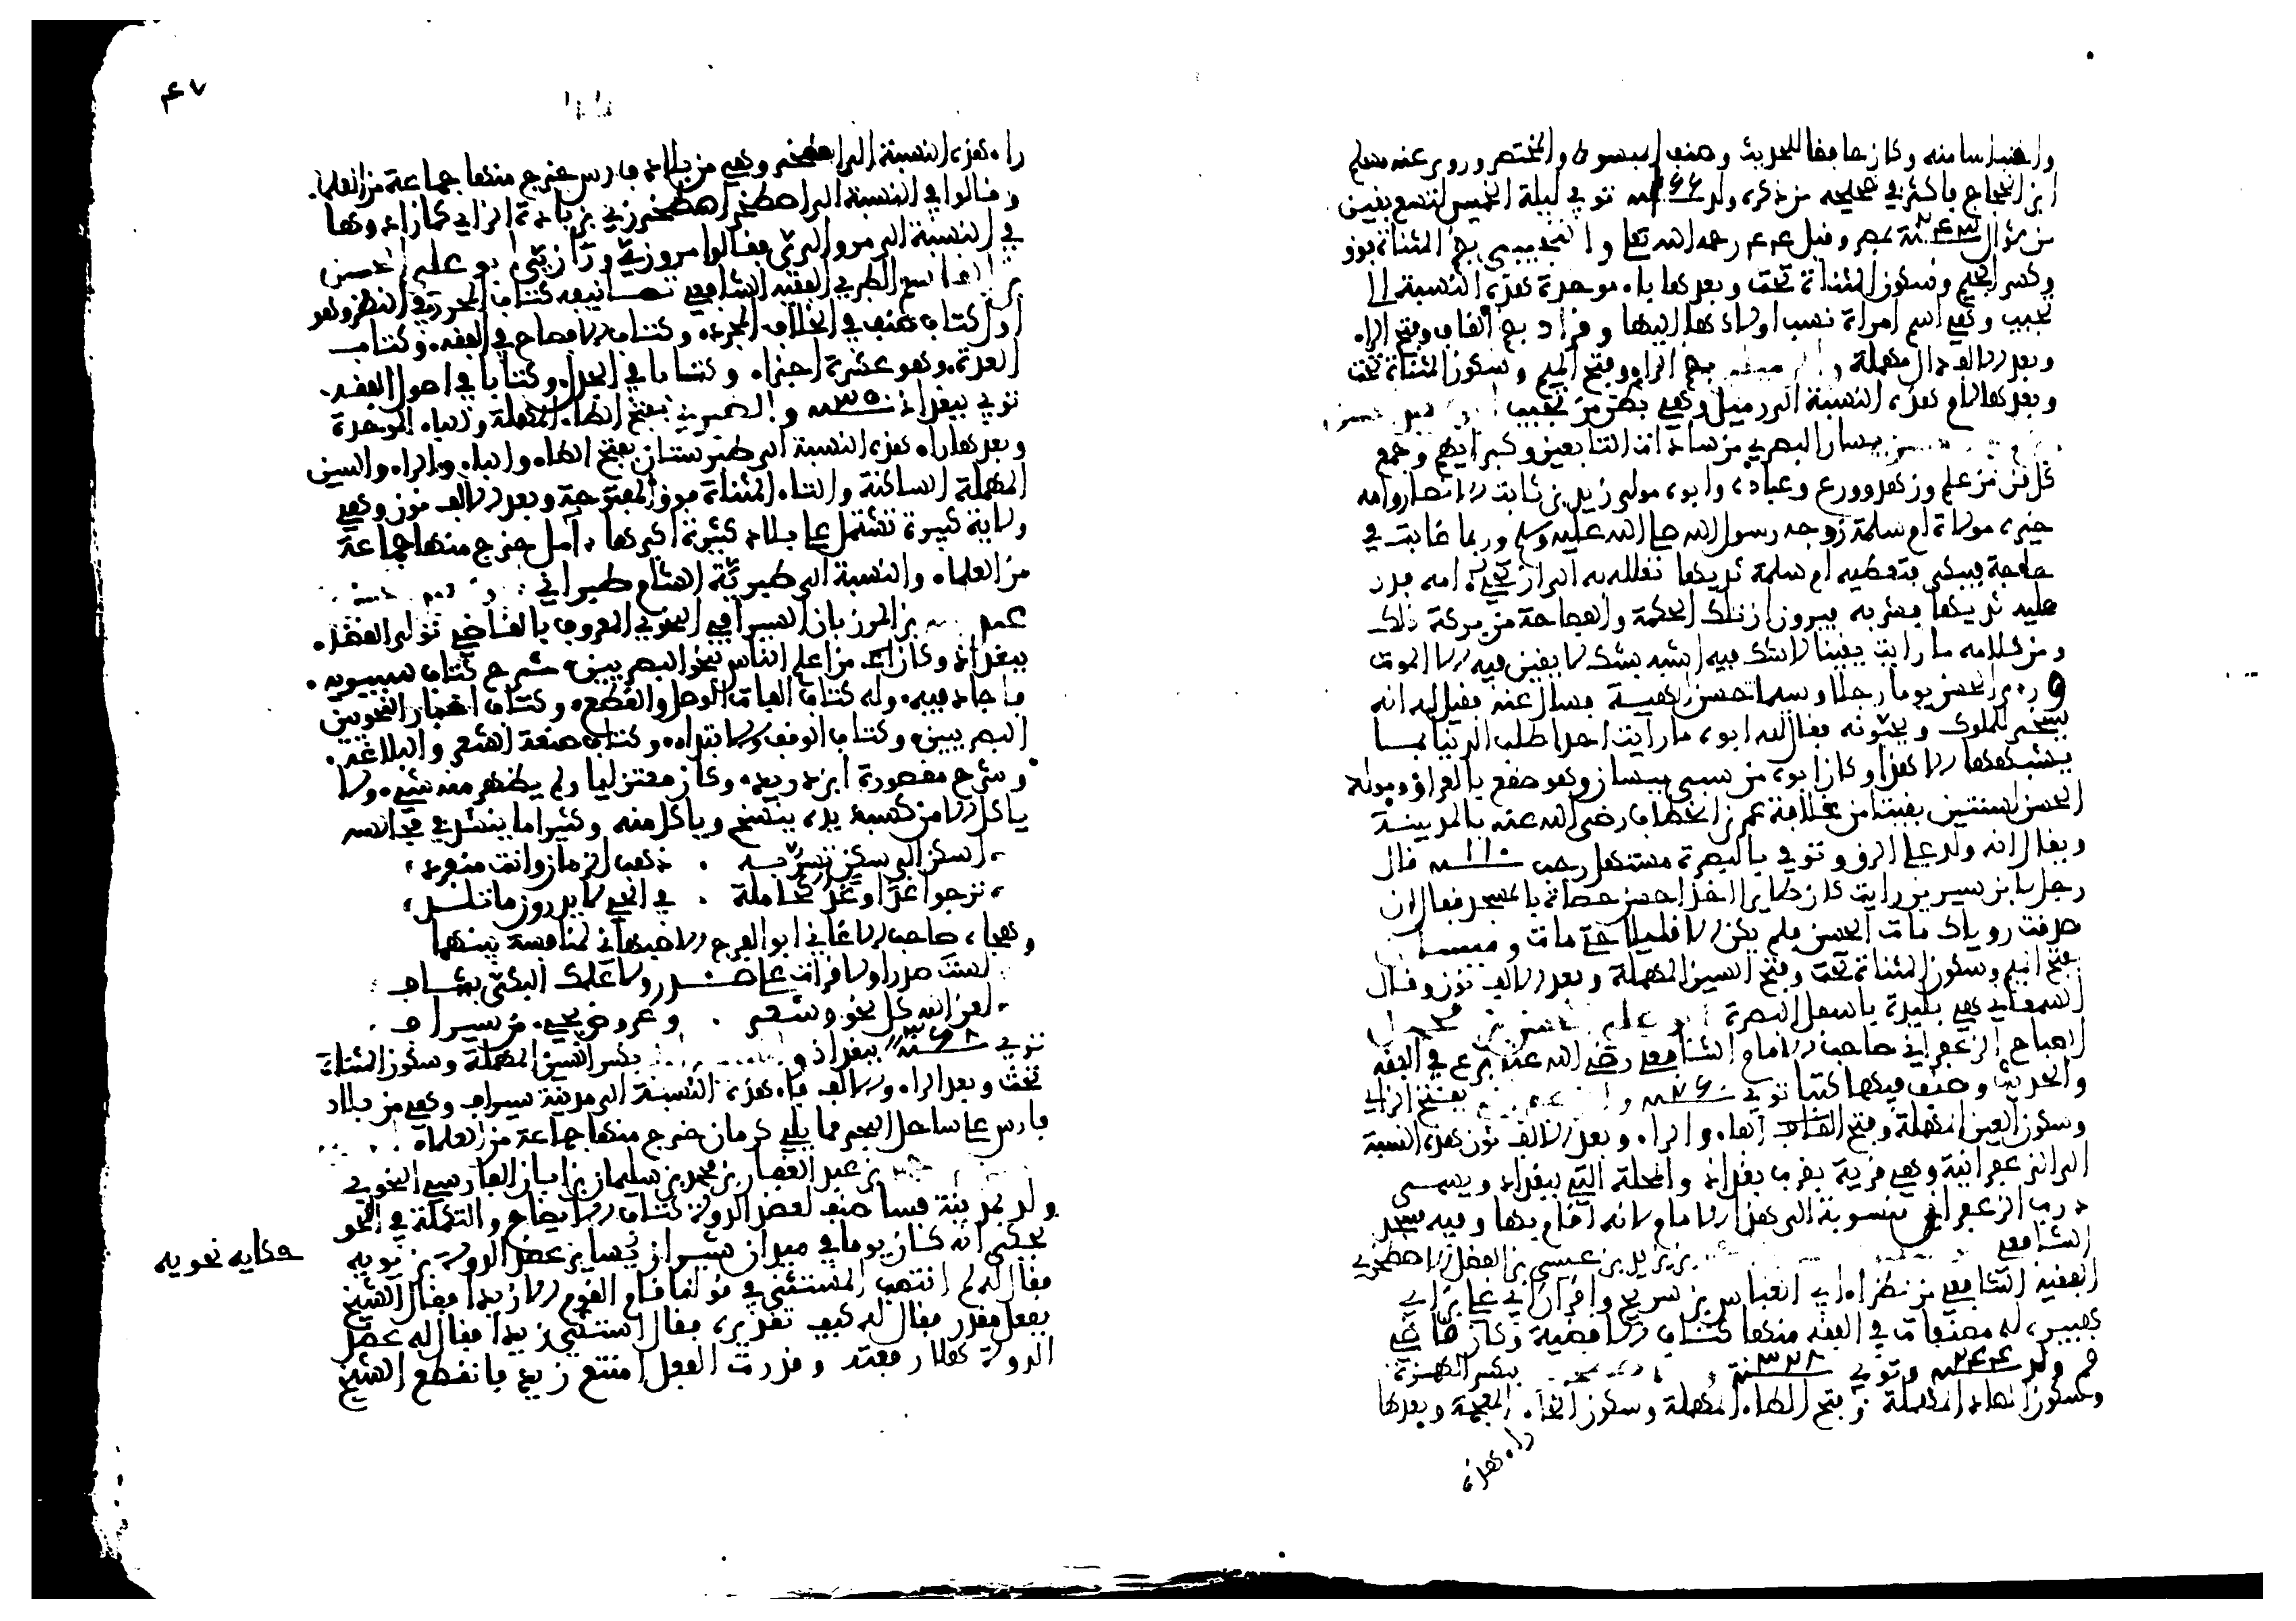 ابن الحجاج باكثر في صحيحه من ذكره ولد سنة ١٦٦ توفي ليلة الخميس لتسع بقين
من شوال سنة ٢٤٣ بمصر وقيل ٢٤٤ رحمه الله تعلى والتجيبي بضم المثناة فوق
وكسر الجيم وسكون المثناة تحت وبعدها باء موحدة هذه النسبة الى
تجيب وهي اسم امراة نسب اولادها اليها وقراد بضم القاف وفتح الراء
وبعد الالف دال مهملة بضم الراء وفتح الميم وسكون المثناة تحت
وبعدها لام هذه النسبة الى زميل وهي بطن من تجيب
بن يسار البصري من سادات التابعين وكبرائهم وجمع
كل فن من علم وزهد وورع وعبادة وابوه مولى زيد بن ثابت الانصاري وامه
خيرة مولاة ام سلمة زوجة رسول الله صلى الله عليه وسلم وربما غابت في
حاجة فيبكي فتعطيه ام سلمة ثديها تعلله به الى ان تجيء امه فدر
عليه ثديها فشربه فيرون ان تلك الحكمة والفصاحة من بركة ذلك
ومن كلامه ما رايت يقينا لا شك فيه اشبه بشك لا يقين فيه الا الموت
وراى الحسن يوما رجلا وسيما حسن الهيئة فسال عنه فقيل له انه
يسخر للملوك ويحبونه فقال لله ابوه ما رايت احدا طلب الدنيا بما
يشبهها الا هذا وكان ابوه من سبي ميسان وهو صقع بالعراق ومولد
الحسن لسنتين بقيتا من خلافة عمر بن الخطاب رضي الله عنه بالمدينة
ويقال انه ولد على الرق وتوفي بالبصرة مستهل رجب سنة ١١٠ قال
رجل لابن سيرين رايت كان طايرا اخذ احسن حصاة بالمسجد فقال ان
صدقت روياك مات الحسن فلم يكن الا قليلا حتى مات وميسان
بفتح الميم وسكون المثناة تحت وفتح السين المهملة وبعد الالف نون وقال
السمعاني هي بليدة باسفل البصرة ابو علي الحسن بن محمد بن
الصباح الزعفراني صاحب الامام الشافعي رضي الله عنه برع في الفقه
والحديث وصنف فيهما كتبا توفي سنة ٢٦٠ بفتح الزاي
وسكون العين المهملة وفتح الفاء والراء وبعد الالف نون هذه النسبة
الى الزعفرانية وهي قرية بقرب بغداد والمحلة التي ببغداد ويسمى
درب الزعفراني منسوبة الى هذا الامام لانه اقام بها وفيه مسجد
الشافعي بن يزيد بن عيسى بن الفضل الاصطخري
الفقيه الشافعي من نظراء ابي العباس بن سريج واقران ابي علي بن ابي
هبيرة له مصنفات في الفقه منها كتاب الاقضية وكان قاضي
قم ولد سنة ٢٤٤ وتوفي سنة ٣٢٨ بكسر الهمزة
وسكون الصاد المهملة وفتح الطاء المهملة وسكون الخاء المعجمة وبعدها
راء هذه
٤٧
راء هذه النسبة الى اصطخر وهي من بلاد فارس خرج منها جماعة من العلماء
وقالوا في النسبة الى اصطخر اصطخرزي بزيادة الزاي كما زادوها
في النسبة الى مرو والري فقالوا مروزي ورازي ابو علي الحسن
بن القاسم الطبري الفقيه الشافعي تصانيفه كتاب المحرر في النظر وهو
اول كتاب صنف في الخلاف المجرد وكتاب الافصاح في الفقه وكتاب
العدة وهو عشرة اجزاء وكتابا في الجدل وكتابا في اصول الفقه
توفي ببغداد سنة ٣٥٠ والطبري بفتح الطاء المهملة والباء الموحدة
وبعدها راء هذه النسبة الى طبرستان بفتح الطاء والباء والراء والسين
المهملة الساكنة والتاء المثناة فوق المفتوحة وبعد الالف نون وهي
ولاية كبيرة تشتمل على بلاد كثيرة اكبرها ءامل خرج منها جماعة
من العلماء والنسبة الى طبرية الشام طبراني
بن المرزبان السيرافي النحوي المعروف بالقاضي تولى القضاء
ببغداد وكان من اعلم الناس بنحو البصريين شرح كتاب سيبويه
فاجاد فيه وله كتاب الفات الوصل والقطع وكتاب اخبار النحويين
البصريين وكتاب الوقف والابتداء وكتاب صنعة الشعر والبلاغة
وشرح مقصورة ابن دريد وكان معتزليا ولم يظهر منه شيء ولا
ياكل الا من كسب يده ينسخ وياكل منه وكثيرا ما ينشد في مجالسه
اسكن الى سكن تسر به . ذهب الزمان وانت منفرد
ترجوا غدا وغد كحاملة . في الحي لا يدرون ما تلد
وهجاه صاحب الاغاني ابو الفرج الاصبهاني لمنافسة بينهما
لست صدرا ولا قرات على صدر ولا علمك البكي بشاف
لعن الله كل نحو وشعر . وعروض يجيء من سيراف
توفي سنة ٣٦٨ ببغداد بكسر السين المهملة وسكون المثناة
تحت وبعد الراء والالف فاء هذه النسبة الى مدينة سيراف وهي من بلاد
فارس على ساحل البحر مما يلي كرمان خرج منها جماعة من العلماء
بن عبد الغفار بن محمد بن سليمان بن ابان الفارسي النحوي
ولد بمدينة فسا صنف لعضد الدولة كتاب الايضاح والتكملة في النحو
يحكى انه كان يوما في ميدان شيراز يساير عضد الدولة بن بويه
فقال له لم انتصب المستثنى في قولنا قام القوم الا زيدا فقال الشيخ
بفعل مقدر فقال له كيف تقديره فقال استثني زيدا فقال له عضد
الدولة هلا رفعته وقدرت الفعل امتنع زيد فانقطع الشيخ
حكايه نحويه